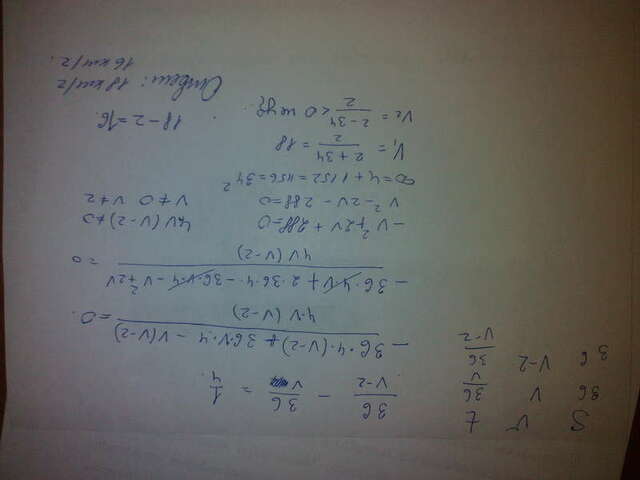 S V t
36 V 36/V
36 V-2 36/(V-2)
36/(V-2) - 36/V = 1/4
(-36·4·(V-2) + 36·V·4 - V(V-2))/(4·V(V-2)) = 0.
(-36·4·V + 2·36·4 - 36·V·4 - V²+2V)/(4V(V-2)) = 0
-V²+2V+288=0 4V(V-2)≠0
V²-2V-288=0 V≠0 V≠2
D=4+1152=1156=34²
V₁ = (2+34)/2 = 18
V₂ = (2-34)/2 <0 не уд. 18-2=16.
Ответ: 18 км/ч
16 км/ч.